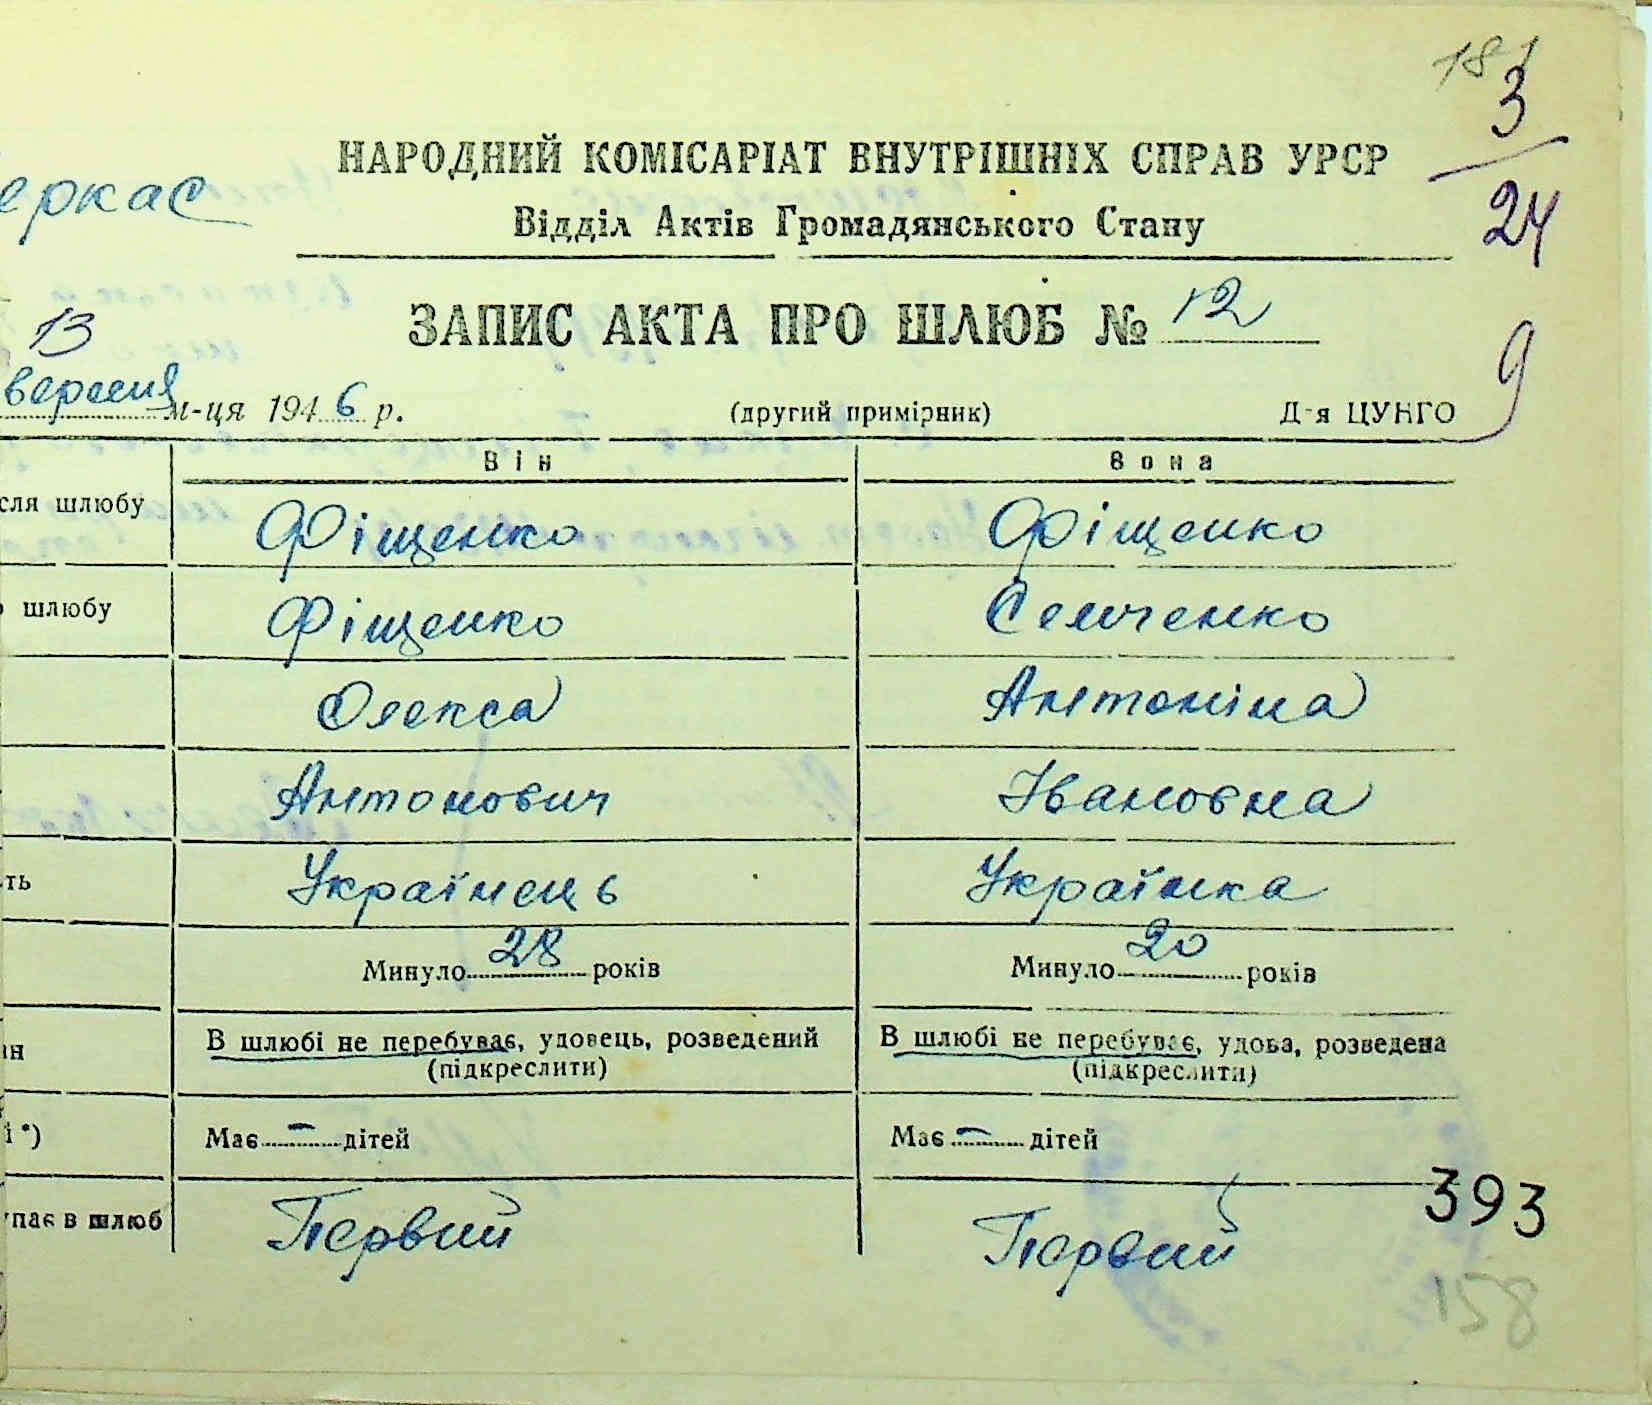 181
3
24
9
НАРОДНИЙ КОМІСАРІАТ ВНУТРІШНІХ СПРАВ УРСР
еркас
Відділ Актів Громадянського Стану
ЗАПИС АКТА ПРО ШЛЮБ № 12
13
вересня м-ця 1946 р. (другий примірник) Д-я ЦУНГО
Він Вона
сля шлюбу Фіщенко Фіщенко
о шлюбу Фіщенко Семченко
Олекса Антоніна
Антонович Івановна
ть Українець Українка
Минуло 28 років Минуло 20 років
ан В шлюбі не перебуває, удовець, розведений В шлюбі не перебуває, удова, розведена
(підкреслити) (підкреслити)
і*) Має — дітей Має — дітей
393
упає в шлюб Первий Первий
158